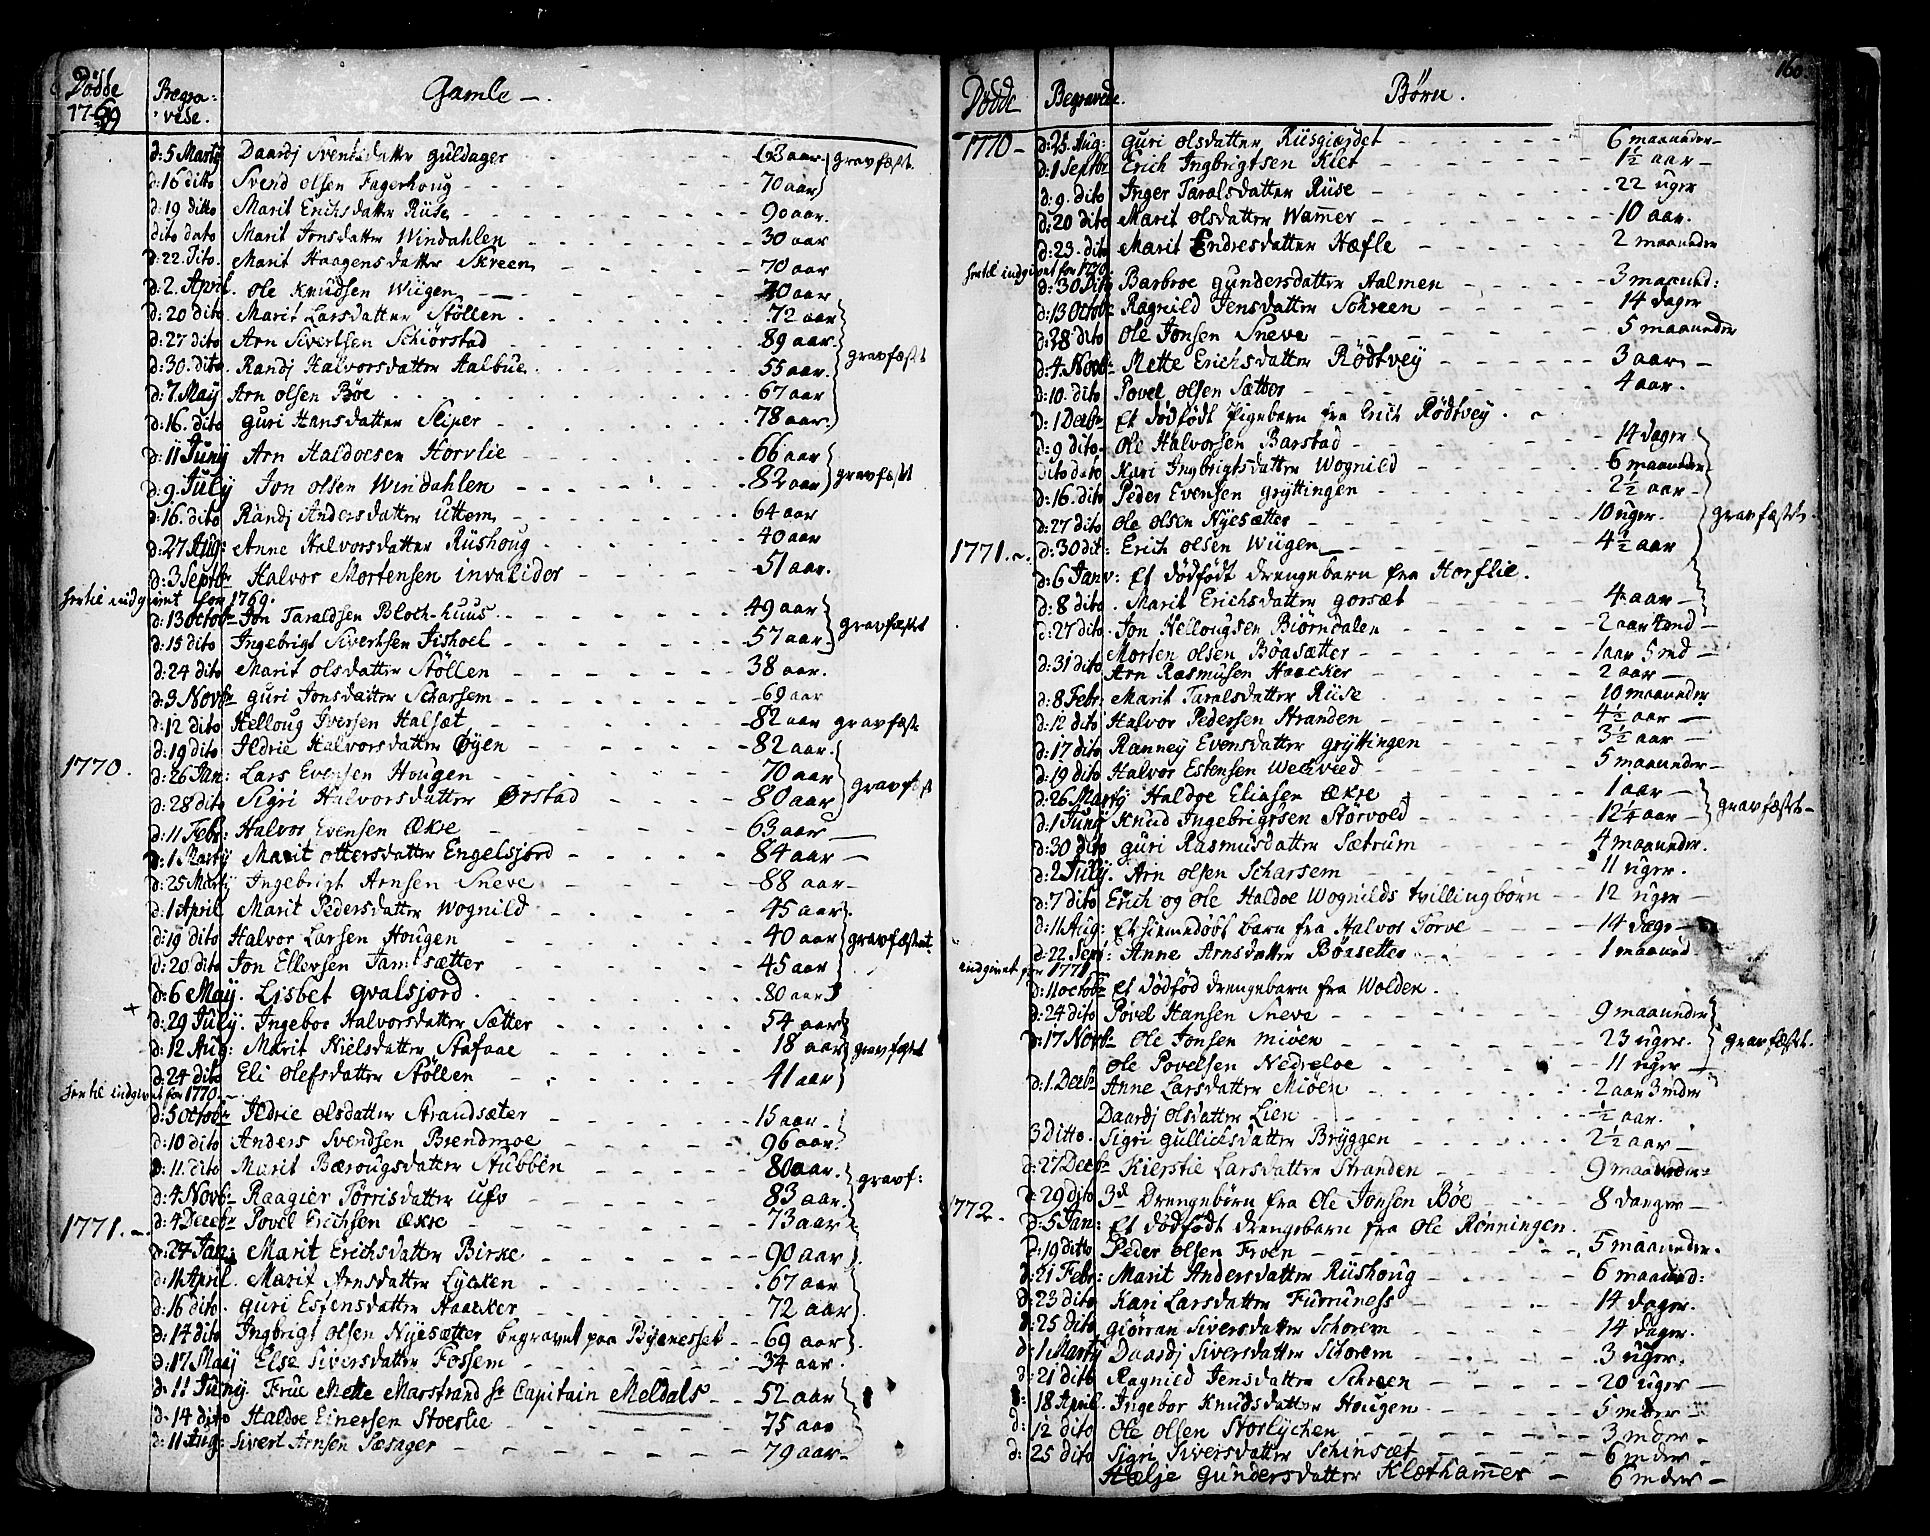 Dödde Begra: Gamle –.
1769 vede.
d: 5 Marty Daardj Svensdatter Guldager 63 aar. gravfæst
d: 16 ditto Svend Olsen Fagerhoug 70 aar
d: 19 ditto Marit Erichsdatter Rüse 90 aar.
dito dato Marit Jonsdatter Windahlen 30 aar
d: 22. Dito. Marit Haagensdatter Skreen 70 aar
d: 2. April. Ole Knudsen Wiigen 70 aar
d: 20 dito Marit Larsdatter Stöllen 72 aar
d: 27 dito Arn Sivertsen Schiörstad 89 aar.
d: 30. dito. Randj Halvorsdatter Halbue 55 aar. gravfæstt
d: 7. May Arn Olsen Böe 67 aar
d: 16. dito Guri Hansdatter Sliper 78 aar.
d: 11 Juny Arn Haldoesen Horvlie 66 aar
d: 9. July Jon Olsen Windahlen 82 aar gravfæst
d: 16. dito Randj Andersdatter Uttem 64 aar
d: 27 Aug: Anne Halvorsdatter Rüshoug 40 aar
d: 3 Septbr Halvor Mortensen invalider 51 aar.
hertil indgivet for 1769.
d: 13 Octobr Jon Taraldsen Bloch-huus 49 aar
d: 15 dito Ingebrigt Sivertsen Fishoel 57 aar. gravfæstt
d: 24 dito Marit Olsdatter Stöllen 38 aar.
d: 3 Novbr Guri Jonsdatter Scharsem 69 aar
d: 12 dito Helloug Iversen Halsæt 82 aar gravfæst
d: 19 dito Ildrie Halvorsdatter Øyen 82 aar.
1770. d: 26 Jan: Lars Evensen Hougen 70 aar gravfest
d: 28 dito Sigri Halvorsdatter Ørstad 80 aar
d: 11 Febr: Halvor Evensen Ækre 63 aar
d: 1 Marty Marit Ottersdatter Engelsjord 84 aar
d: 25 Marty Ingebrigt Arnsen Sneve 88 aar
d: 1 April Marit Pedersdatter Wognild 45 aar
d: 19 dito Halvor Larsen Hougen 40 aar gravfæstet
d: 20 dito Jon Ellevsen Jamtsætter 45 aar
d: 6 May. Lisbet Qvalsjord 80 aar
d: 29 July. Ingebor Halvorsdatter Sætter 54 aar
d: 12 Aug: Marit Nielsdatter Stafaae 18 aar gravfæstet
d: 24 dito Eli Olefsdatter Stöllen 41 aar
hertil indgivet for 1770.
d: 5 Octobr Ildrie Olsdatter Strandsæter 15 aar
d: 10 dito Anders Svendsen Brendmoe 96 aar
d: 11. dito Marit Bærougsdatter Stubben 80 aar. gravf:
d: 4 Novbr Raagier Torrisdatter Ufv 83 aar
d: 4 Decbr Povel Erichsen Ækre 73 aar
1771. d: 24 Jan: Marit Erichsdatter Birke 90 aar
d: 14 April. Marit Arnsdatter Lycken 67 aar
d: 16 dito. Guri Estensdatter Haacker 72 aar
d: 14 dito Ingbrigt Olsen Nyesætter begravet paa Bynesset 69 aar
d: 17 May Else Siversdatter Fossem 34 aar.
d: 11 Juny. Frue Mette Marstrand Sr Capitain Meldals 52 aar
d: 14 dito Haldoe Einersen Stoerlie 75 aar
d: 11 Aug: Sivert Arnsen Sæsager 79 aar
160.
Dödde Begravede. Börn.
1770 d: 25 Aug: Guri Olsdatter Rüsgiærdet 6 maaneder
d: 1 Septbr Erich Ingbrigtsen Klet 1½ aar
d: 9. dito Inger Taralsdatter Rüse 22 uger
d: 20 dito Marit Olsdatter Wam̄er 10 aar.
d: 23. dito Marit Endresdatter Hæfle 2 maaneder
hertil indgivet for 1770.
d: 30 Dito Barbroe Gundersdatter Aalmen 3 maaned:
d: 13 Octobr Ragnild Jensdatter Schreen 14 dager
d: 28 dito Ole Jonsen Sneve 5 maaneder
d: 4. Novbr Mette Erichsdatter Rödtvey 3 aar
d: 10. dito Povel Olsen Sætter 4 aar.
d: 1 Decbr Et dödfödt Pigebarn fra Erich Rödtvey.
d: 9 dito Ole Halvorsen Barstad 14 dager
dito dato Kari Ingbrigtsdatter Wognild 6 maaneder
d: 16. dito Peder Evensen Gryttingen 2½ aar
d: 27 dito Ole Olsen Nyesætter 10 uger. gravfæstet
1771. d: 30 dit: Erich Olsen Wiigen 4½ aar
d: 6 Janv: Et dödfödt drengebarn fra Horflie.
d: 8 dito. Marit Erichsdatter Gorsæt 4 aar
d: 27 dito. Jon Hellougsen Biörndalen 2 aar
d: 31 dito Morten Olsen Böasætter 1 aar 5 md
Arn Rasmusen Haacker 2 aar
d: 8 Febr: Marit Taralsdatter Rüse 10 maaneder
d: 12 dito Halvor Pedersen Stranden 4½ aar
d: 17 dito Ranney Evensdatter Gryttingen 3½ aar
d: 19 dito Halvor Estensen Weckveed 5 maaneder
d: 26 Marty Haldoe Eliasen Ækre 1 aar gravfæstet
d: 1 Juny Knud Ingebrigtsen Storvold 12¼ aar
d: 30 dito Guri Rasmusdatter Sætrum 4 maaneder.
d: 2 July. Arn Olsen Scharsem 11 uger.
d: 7 dito Erich og Ole Haldoe Wognilds tvillingbörn 12 uger
d: 11 Aug: Et hiemedöbt barn fra Halvor Torve 14 dage
d: 22 Sept: Anne Arnsdatter Böasetter 1 maaned
indgivet for 1771
d: 11 Octobr Et dödföd drengebarn fra Wolden.
d: 24 dito Povel Hansen Sneve 9 maaneder
d: 17 Novbr Ole Jonsen Miöen 23 uger. gravfæstt.
Ole Povelsen Nedreloe 11 uger
d: 1. Decbr Anne Larsdatter Miöen 2 aar 3 mder
Daardj Olsdatter Lien ½ aar.
3 Ditto. Sigri Gullichsdatter Bryggen 2½ aar
d: 27 Decbr Kierstie Larsdatter Stranden 9 maaneder
d: 29 dito 3de Drengebörn fra Ole Jonsen Böe 8 danger
1772. d: 5 Jan: Et dödfödt drengebarn fra Ole Rönningen.
d: 19 ditto Peder Olsen Froen 5 maaneder.
d: 21 Febr: Marit Andersdatter Rüshoug 6 maaned:
d: 23 dito Kari Larsdatter Furruness 14 dager.
d: 25 dito Giörran Siversdatter Schorem 14 dager.
d: 1 Marty Daardj Siversdatter Schorem 3 uger.
d: 21 dito Ragnild Jensdatter Schreen 20 uger
d: 18 April. Ingebor Knudsdatter Hougen 5 mder
d: 12 dito Ole Olsen Storlychen 3 mder
d: 25 dito Sigri Siversdatter Schinsæt 6 mder
Hælje Gundersdatter Klethammer 6 mder